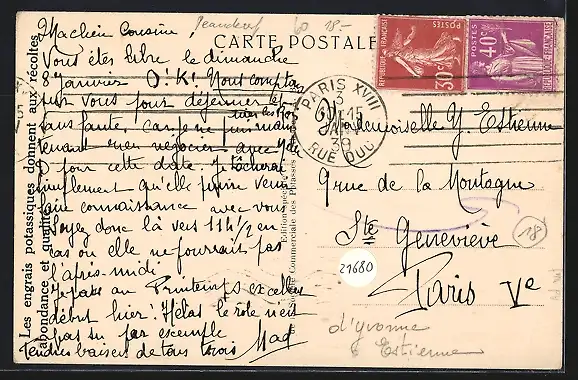 Jeandeuf 60 18.-
CARTE POSTALE
Ma chère Cousine,
Vous êtes libre le dimanche
8 Janvier O.K! Nous comptons
sur vous pour déjeuner et
tirer les Rois
sans faute, car je puis main
tenant rien négocier avec
pour cette date. Je tâcherai
simplement qu'elle puisse venir
faire connaissance avec vous
Soyez donc là vers 11h 1/2 en
cas où elle ne pourrait pas
l'après-midi.
Je passe au Printemps excellent
début hier! Hélas le rôle n'est
pas su par exemple
Tendres baisers de tous trois Mad
Les engrais potassiques donnent aux récoltes
abondance et qualité
Société Commerciale des Potasses
REPUBLIQUE FRANÇAISE
POSTES
30c
POSTES
40c
REPUBLIQUE FRANÇAISE
PARIS XVIII
15
39
RUE DUC
Mademoiselle Y. Estienne
9 rue de la Montagne
Ste Geneviève
Paris Ve
18
21680
d'Yvonne
Estienne